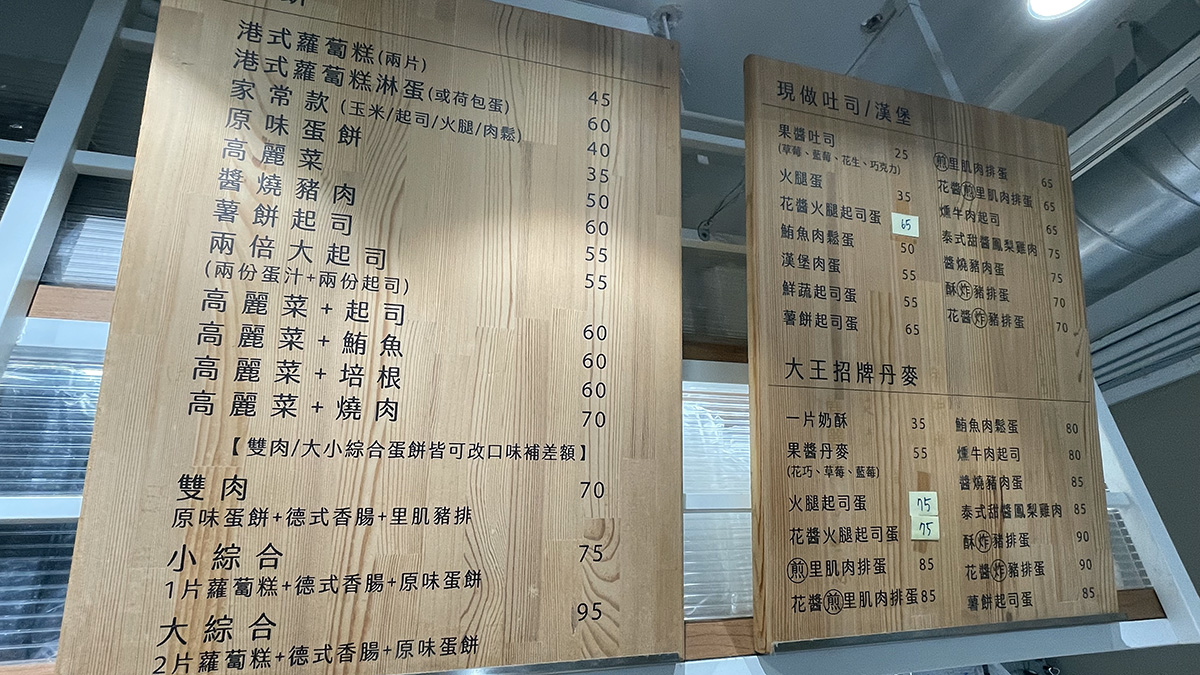 餅
港式蘿蔔糕(兩片) 45
港式蘿蔔糕淋蛋(或荷包蛋) 60
家常款 (玉米/起司/火腿/肉鬆) 40
原味蛋餅 35
高麗菜 50
醬燒豬肉 60
薯餅起司 55
兩倍大起司 55
(兩份蛋汁+兩份起司)
高麗菜+起司 60
高麗菜+鮪魚 60
高麗菜+培根 60
高麗菜+燒肉 70
【雙肉/大小綜合蛋餅皆可改口味補差額】
雙肉 70
原味蛋餅+德式香腸+里肌豬排
小綜合 75
1片蘿蔔糕+德式香腸+原味蛋餅
大綜合 95
2片蘿蔔糕+德式香腸+原味蛋餅
現做吐司/漢堡
果醬吐司 25
(草莓、藍莓、花生、巧克力)
火腿蛋 35
花醬火腿起司蛋 65
鮪魚肉鬆蛋 50
漢堡肉蛋 55
鮮蔬起司蛋 55
薯餅起司蛋 65
煎里肌肉排蛋 65
花醬煎里肌肉排蛋 65
燻牛肉起司 65
泰式甜醬鳳梨雞肉 75
醬燒豬肉蛋 75
酥炸豬排蛋 70
花醬炸豬排蛋 70
大王招牌丹麥
一片奶酥 35
果醬丹麥 55
(花巧、草莓、藍莓)
火腿起司蛋 75
花醬火腿起司蛋 75
煎里肌肉排蛋 85
花醬煎里肌肉排蛋 85
鮪魚肉鬆蛋 80
燻牛肉起司 80
醬燒豬肉蛋 85
泰式甜醬鳳梨雞肉 85
酥炸豬排蛋 90
花醬炸豬排蛋 90
薯餅起司蛋 85